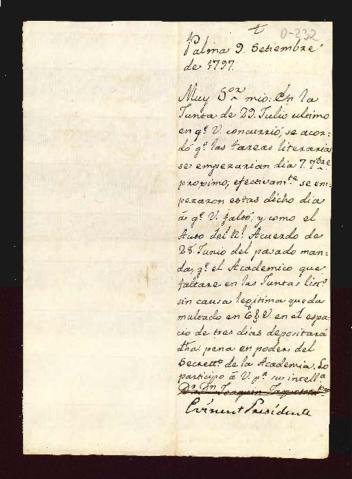 t D-232
Palma 9. Setiembre
de 1797.
Muy Sor mio: En la
Junta de 29. Julio ultimo
en qe. V. concurrió, se acor-
dó qe. las tareas literarias
se empezarian dia 7. 7bre
proximo; efectivamte. se em-
pezaron estas dicho dia
á qe. V. faltó; y como el
Auto del Rl. Acuerdo de
28. Junio del pasado man-
da, qe. el Academico que
faltare en las Juntas litss.
sin causa legitima queda
multado en y en el espa-
cio de tres dias depositará
dha pena en poder del
Secretto. de la Academia. Lo
participo á V. pa. su intella.
Dn. Joaquin
Presidente